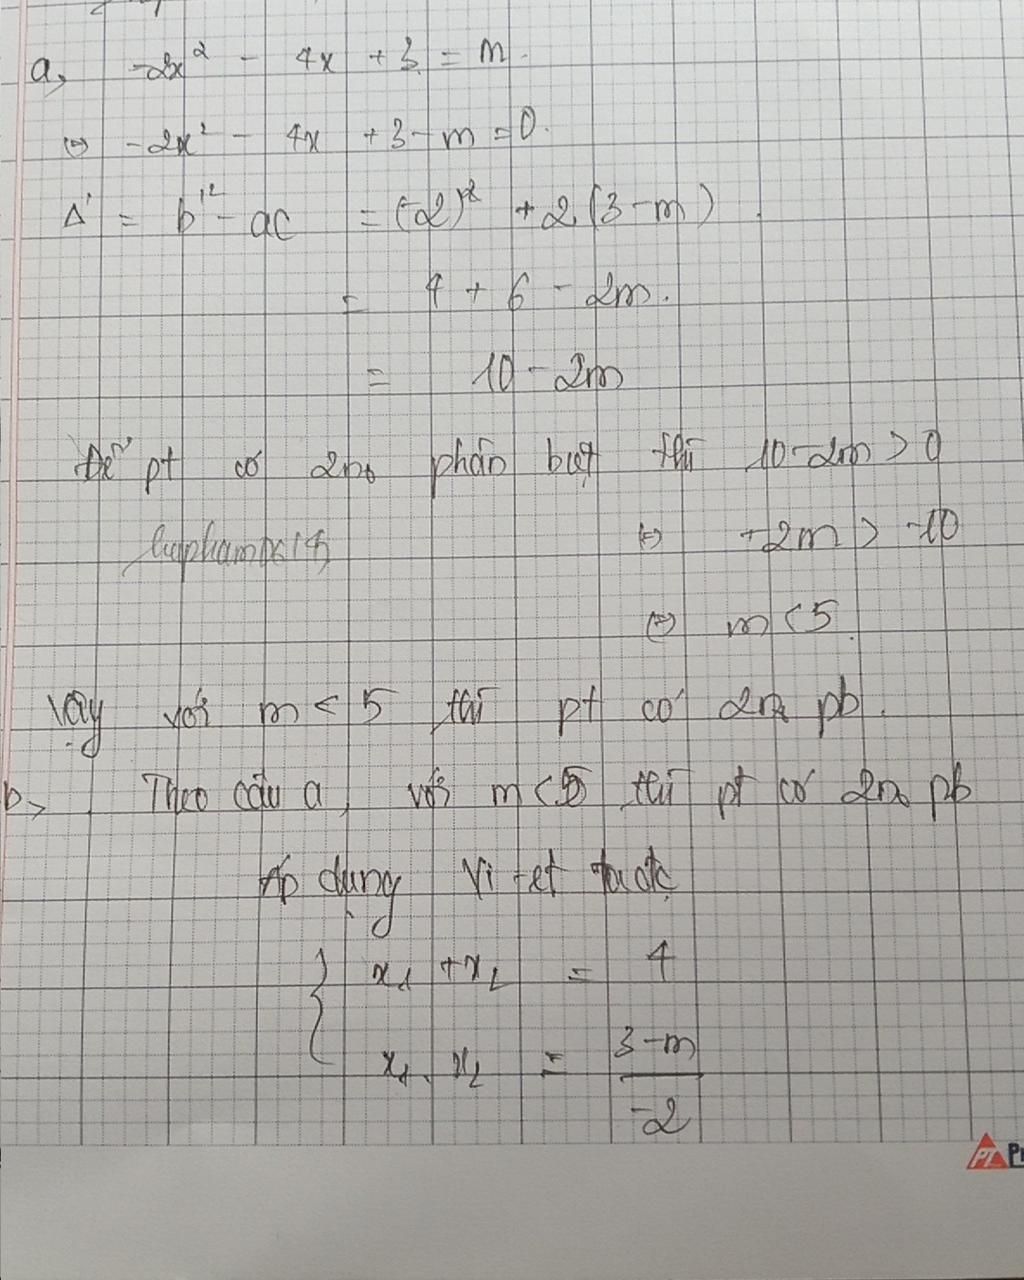 a, -2x² - 4x + 3 = m.
⇔ -2x² - 4x + 3 - m = 0.
Δ' = b'² - ac = (-2)² + 2(3 - m).
= 4 + 6 - 2m.
= 10 - 2m
Để pt có 2no phân biệt thì 10 - 2m > 0
⇔ -2m > -10
⇔ m < 5.
Vậy với m < 5 thì pt có 2no pb.
b, Theo câu a, với m < 5 thì pt có 2no pb
Áp dụng Vi-et ta đc
{ x₁ + x₂ = 4
x₁. x₂ = 3 - m
-2
PT